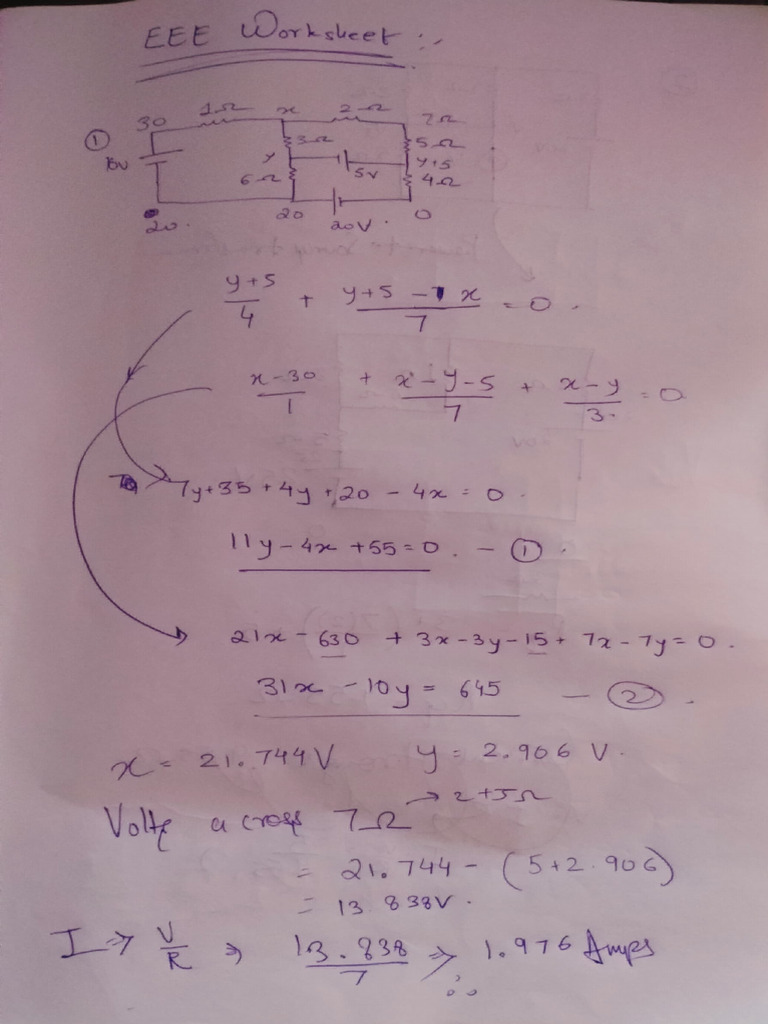 EEE Worksheet :-
①
30 1Ω x 2Ω 7Ω
3Ω 5Ω
y 5V y+5
6Ω 4Ω
20. 20 20V. 0
y+5/4 + y+5-x/7 = 0.
x-30/1 + x-y-5/7 + x-y/3. = 0
7y+35+4y+20-4x=0.
11y-4x+55=0. - ①.
21x-630 + 3x-3y-15+ 7x-7y=0.
31x-10y= 645 - ②.
x= 21.744V y= 2.906 V.
→ 2+5Ω
Volts across 7Ω
= 21.744-(5+2.906)
= 13.838V.
I ⇒ V/R ⇒ 13.838/7 ⇒ 1.976 Amps
∴